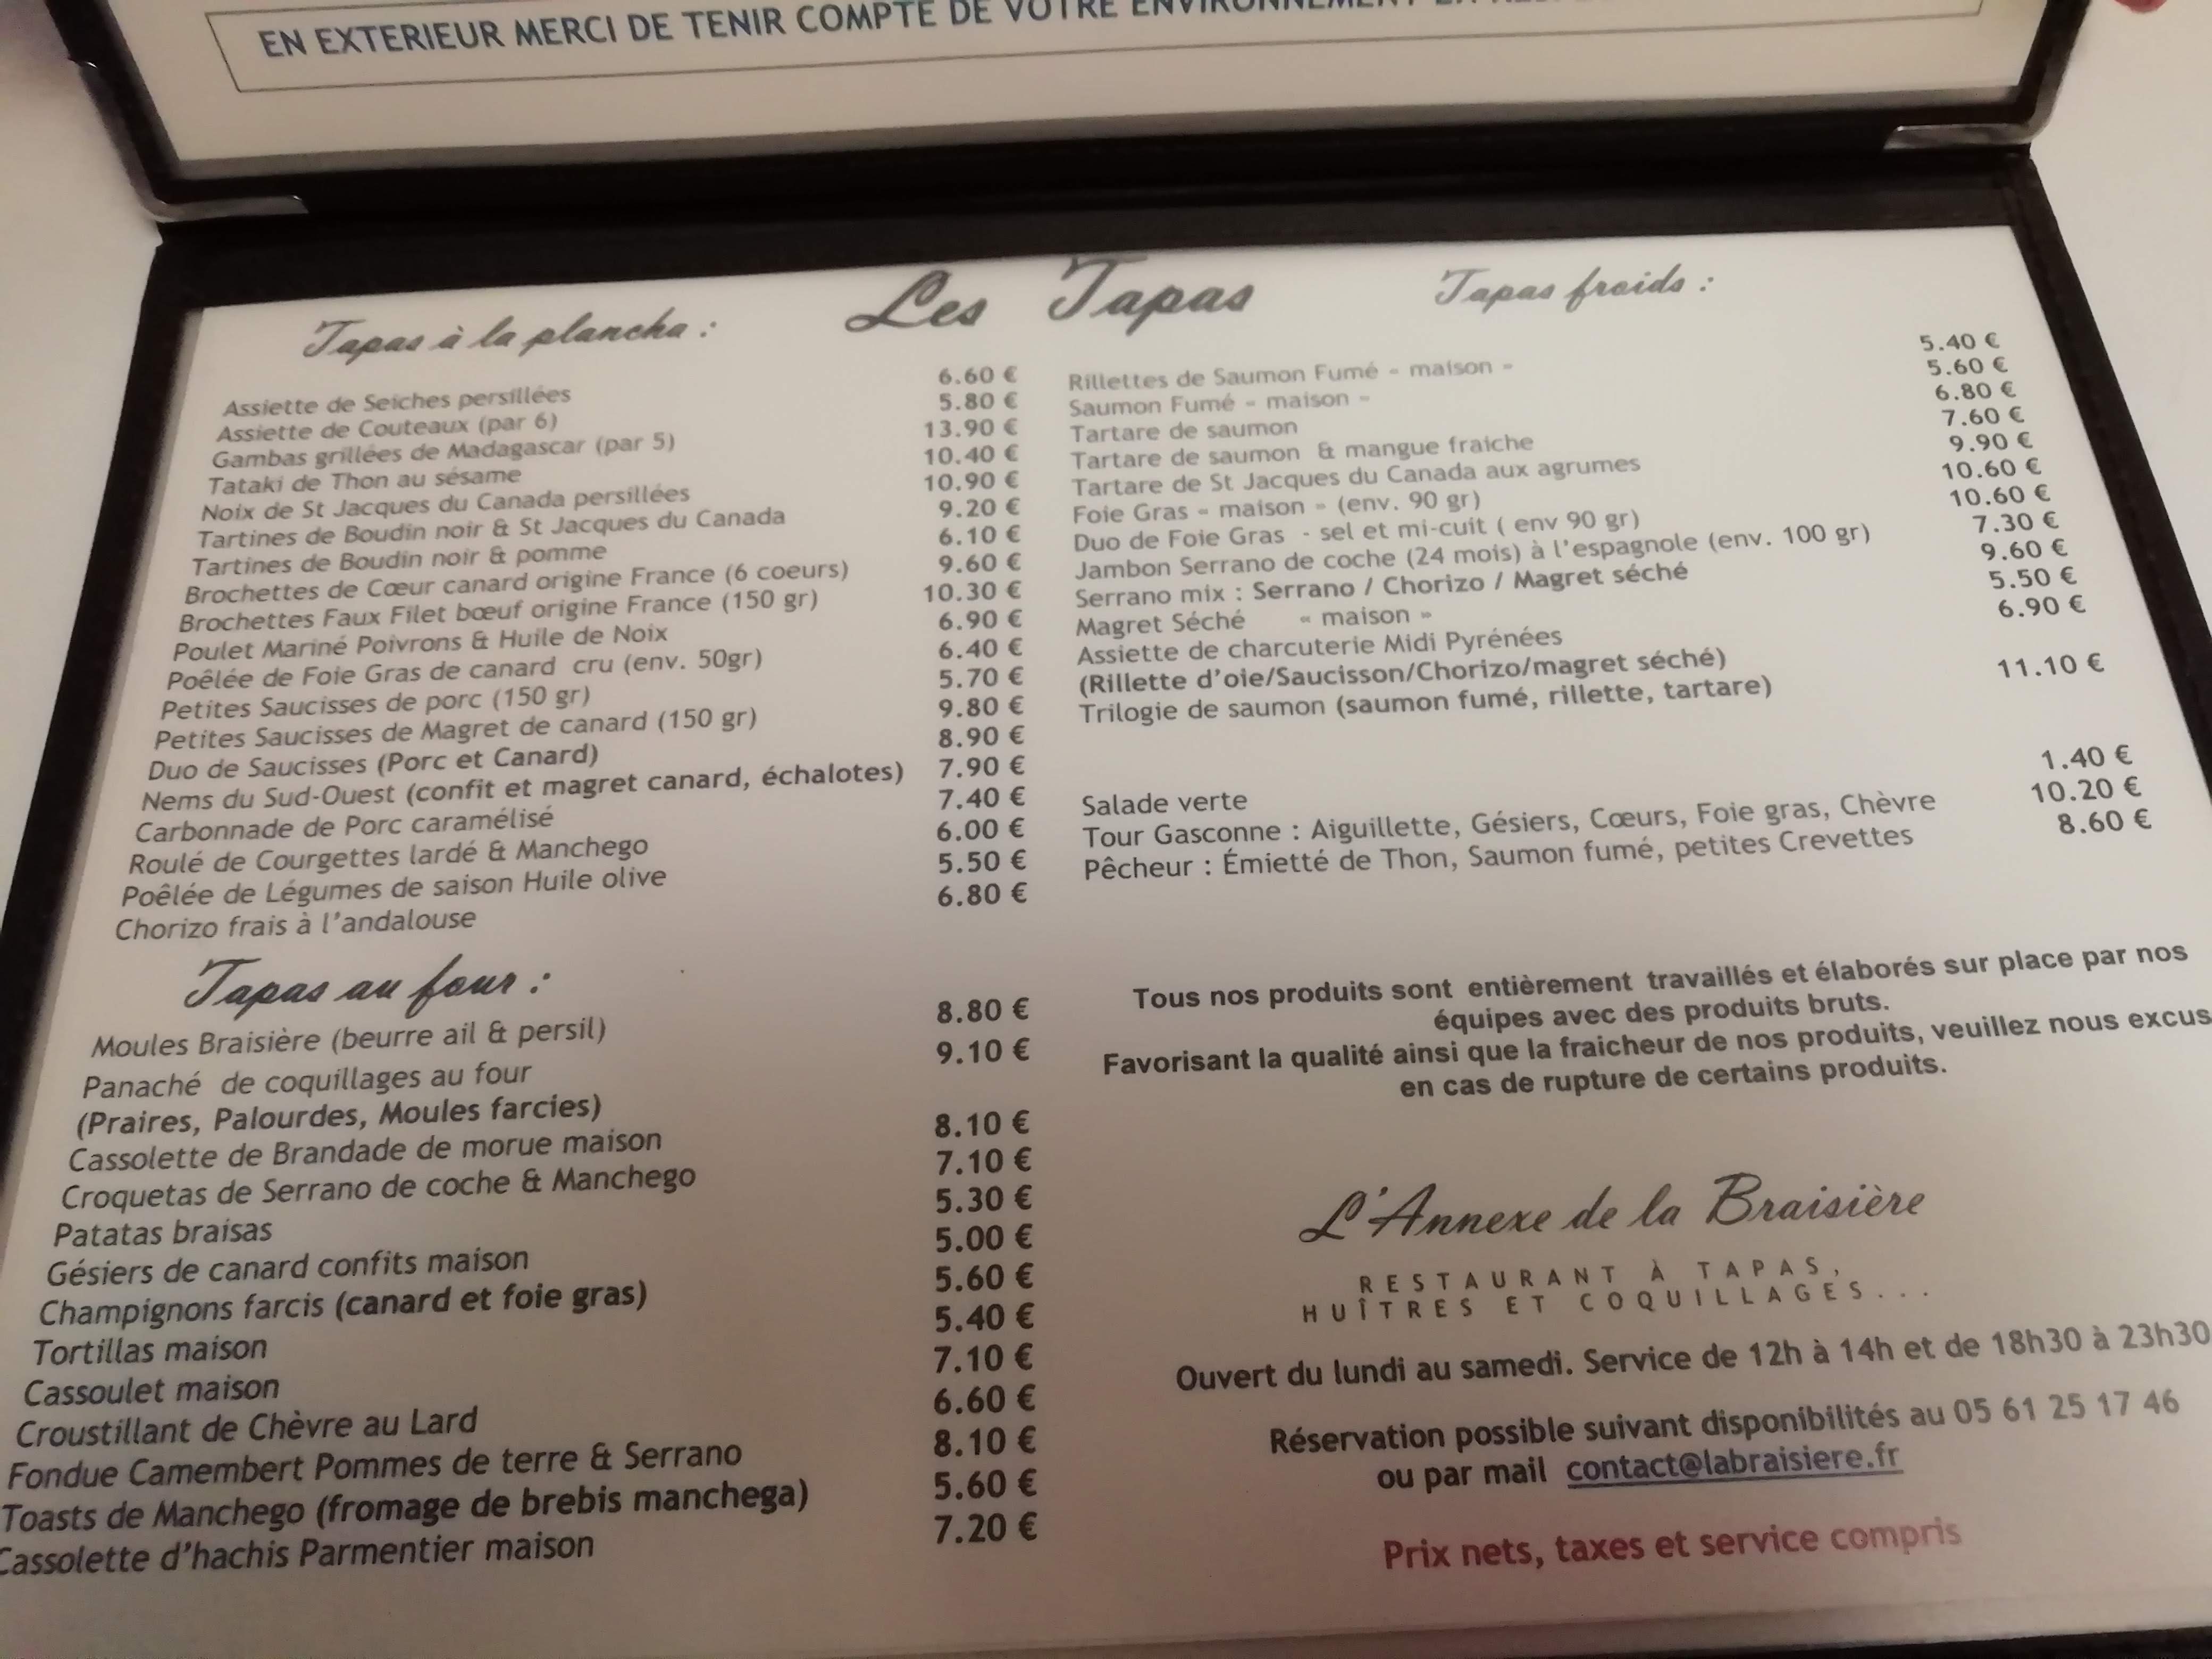 EN EXTERIEUR MERCI DE TENIR COMPTE DE VOTRE ENVIRONNEMENT
Les Tapas
Tapas à la plancha :
Assiette de Seiches persillées 6.60 €
Assiette de Couteaux (par 6) 5.80 €
Gambas grillées de Madagascar (par 5) 13.90 €
Tataki de Thon au sésame 10.40 €
Noix de St Jacques du Canada persillées 10.90 €
Tartines de Boudin noir & St Jacques du Canada 9.20 €
Tartines de Boudin noir & pomme 6.10 €
Brochettes de Cœur canard origine France (6 coeurs) 9.60 €
Brochettes Faux Filet bœuf origine France (150 gr) 10.30 €
Poulet Mariné Poivrons & Huile de Noix 6.90 €
Poêlée de Foie Gras de canard cru (env. 50gr) 6.40 €
Petites Saucisses de porc (150 gr) 5.70 €
Petites Saucisses de Magret de canard (150 gr) 9.80 €
Duo de Saucisses (Porc et Canard) 8.90 €
Nems du Sud-Ouest (confit et magret canard, échalotes) 7.90 €
Carbonnade de Porc caramélisé 7.40 €
Roulé de Courgettes lardé & Manchego 6.00 €
Poêlée de Légumes de saison Huile olive 5.50 €
Chorizo frais à l'andalouse 6.80 €
Tapas au four :
Moules Braisière (beurre ail & persil) 8.80 €
Panaché de coquillages au four 9.10 €
(Praires, Palourdes, Moules farcies)
Cassolette de Brandade de morue maison 8.10 €
Croquetas de Serrano de coche & Manchego 7.10 €
Patatas braisas 5.30 €
Gésiers de canard confits maison 5.00 €
Champignons farcis (canard et foie gras) 5.60 €
Tortillas maison 5.40 €
Cassoulet maison 7.10 €
Croustillant de Chèvre au Lard 6.60 €
Fondue Camembert Pommes de terre & Serrano 8.10 €
Toasts de Manchego (fromage de brebis manchega) 5.60 €
Cassolette d'hachis Parmentier maison 7.20 €
Tapas froids :
Rillettes de Saumon Fumé « maison » 5.40 €
Saumon Fumé « maison » 5.60 €
Tartare de saumon 6.80 €
Tartare de saumon & mangue fraiche 7.60 €
Tartare de St Jacques du Canada aux agrumes 9.90 €
Foie Gras « maison » (env. 90 gr) 10.60 €
Duo de Foie Gras - sel et mi-cuit ( env 90 gr) 10.60 €
Jambon Serrano de coche (24 mois) à l'espagnole (env. 100 gr) 7.30 €
Serrano mix : Serrano / Chorizo / Magret séché 9.60 €
Magret Séché « maison » 5.50 €
Assiette de charcuterie Midi Pyrénées 6.90 €
(Rillette d'oie/Saucisson/Chorizo/magret séché)
Trilogie de saumon (saumon fumé, rillette, tartare) 11.10 €
Salade verte 1.40 €
Tour Gasconne : Aiguillette, Gésiers, Cœurs, Foie gras, Chèvre 10.20 €
Pêcheur : Émietté de Thon, Saumon fumé, petites Crevettes 8.60 €
Tous nos produits sont entièrement travaillés et élaborés sur place par nos
équipes avec des produits bruts.
Favorisant la qualité ainsi que la fraicheur de nos produits, veuillez nous excus
en cas de rupture de certains produits.
L'Annexe de la Braisière
RESTAURANT À TAPAS,
HUÎTRES ET COQUILLAGES...
Ouvert du lundi au samedi. Service de 12h à 14h et de 18h30 à 23h30
Réservation possible suivant disponibilités au 05 61 25 17 46
ou par mail contact@labraisiere.fr
Prix nets, taxes et service compris